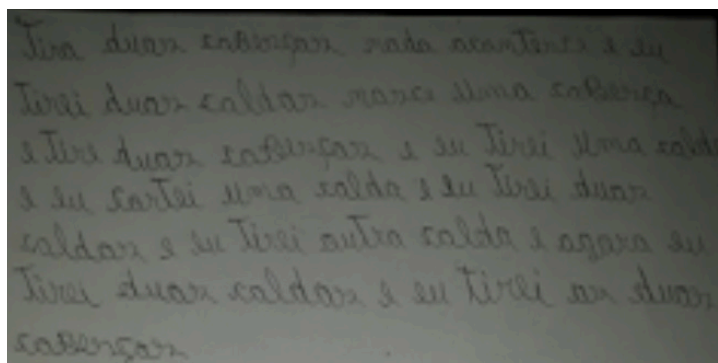 Tira duas cabenças nada acontence e eu
Tirei duas caldas nasce uma cabença
e Tire duas cabenças e eu Tirei uma cald
e eu cortei uma calda e eu Tirei duas
caldas e eu Tirei outra calda e agora eu
Tirei duas caldas e eu Tirei as duas
cabenças